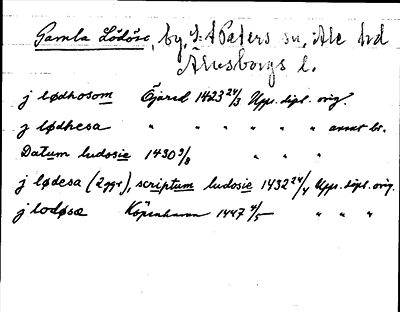 Gamla Lödöse, by, S:t Paters sn, Ale hd
Älvsborgs l.
j lødhosom Öjared 1423 24/3 Upps. dipl. orig.
j lødhesa " " " " " annat br.
Datum ludosie 1430 9/8 " " "
j lødesa (2 ggr), scriptum ludosie 1432 24/4 Upps. dipl. orig.
j lodøsæ Köpenhamn 1447 4/5 " " "